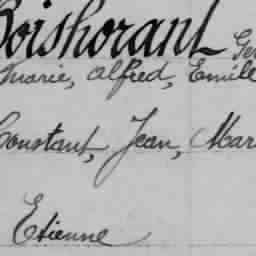 Boishorant
Marie, Alfred, Emile
Constant, Jean, Mar
Etienne